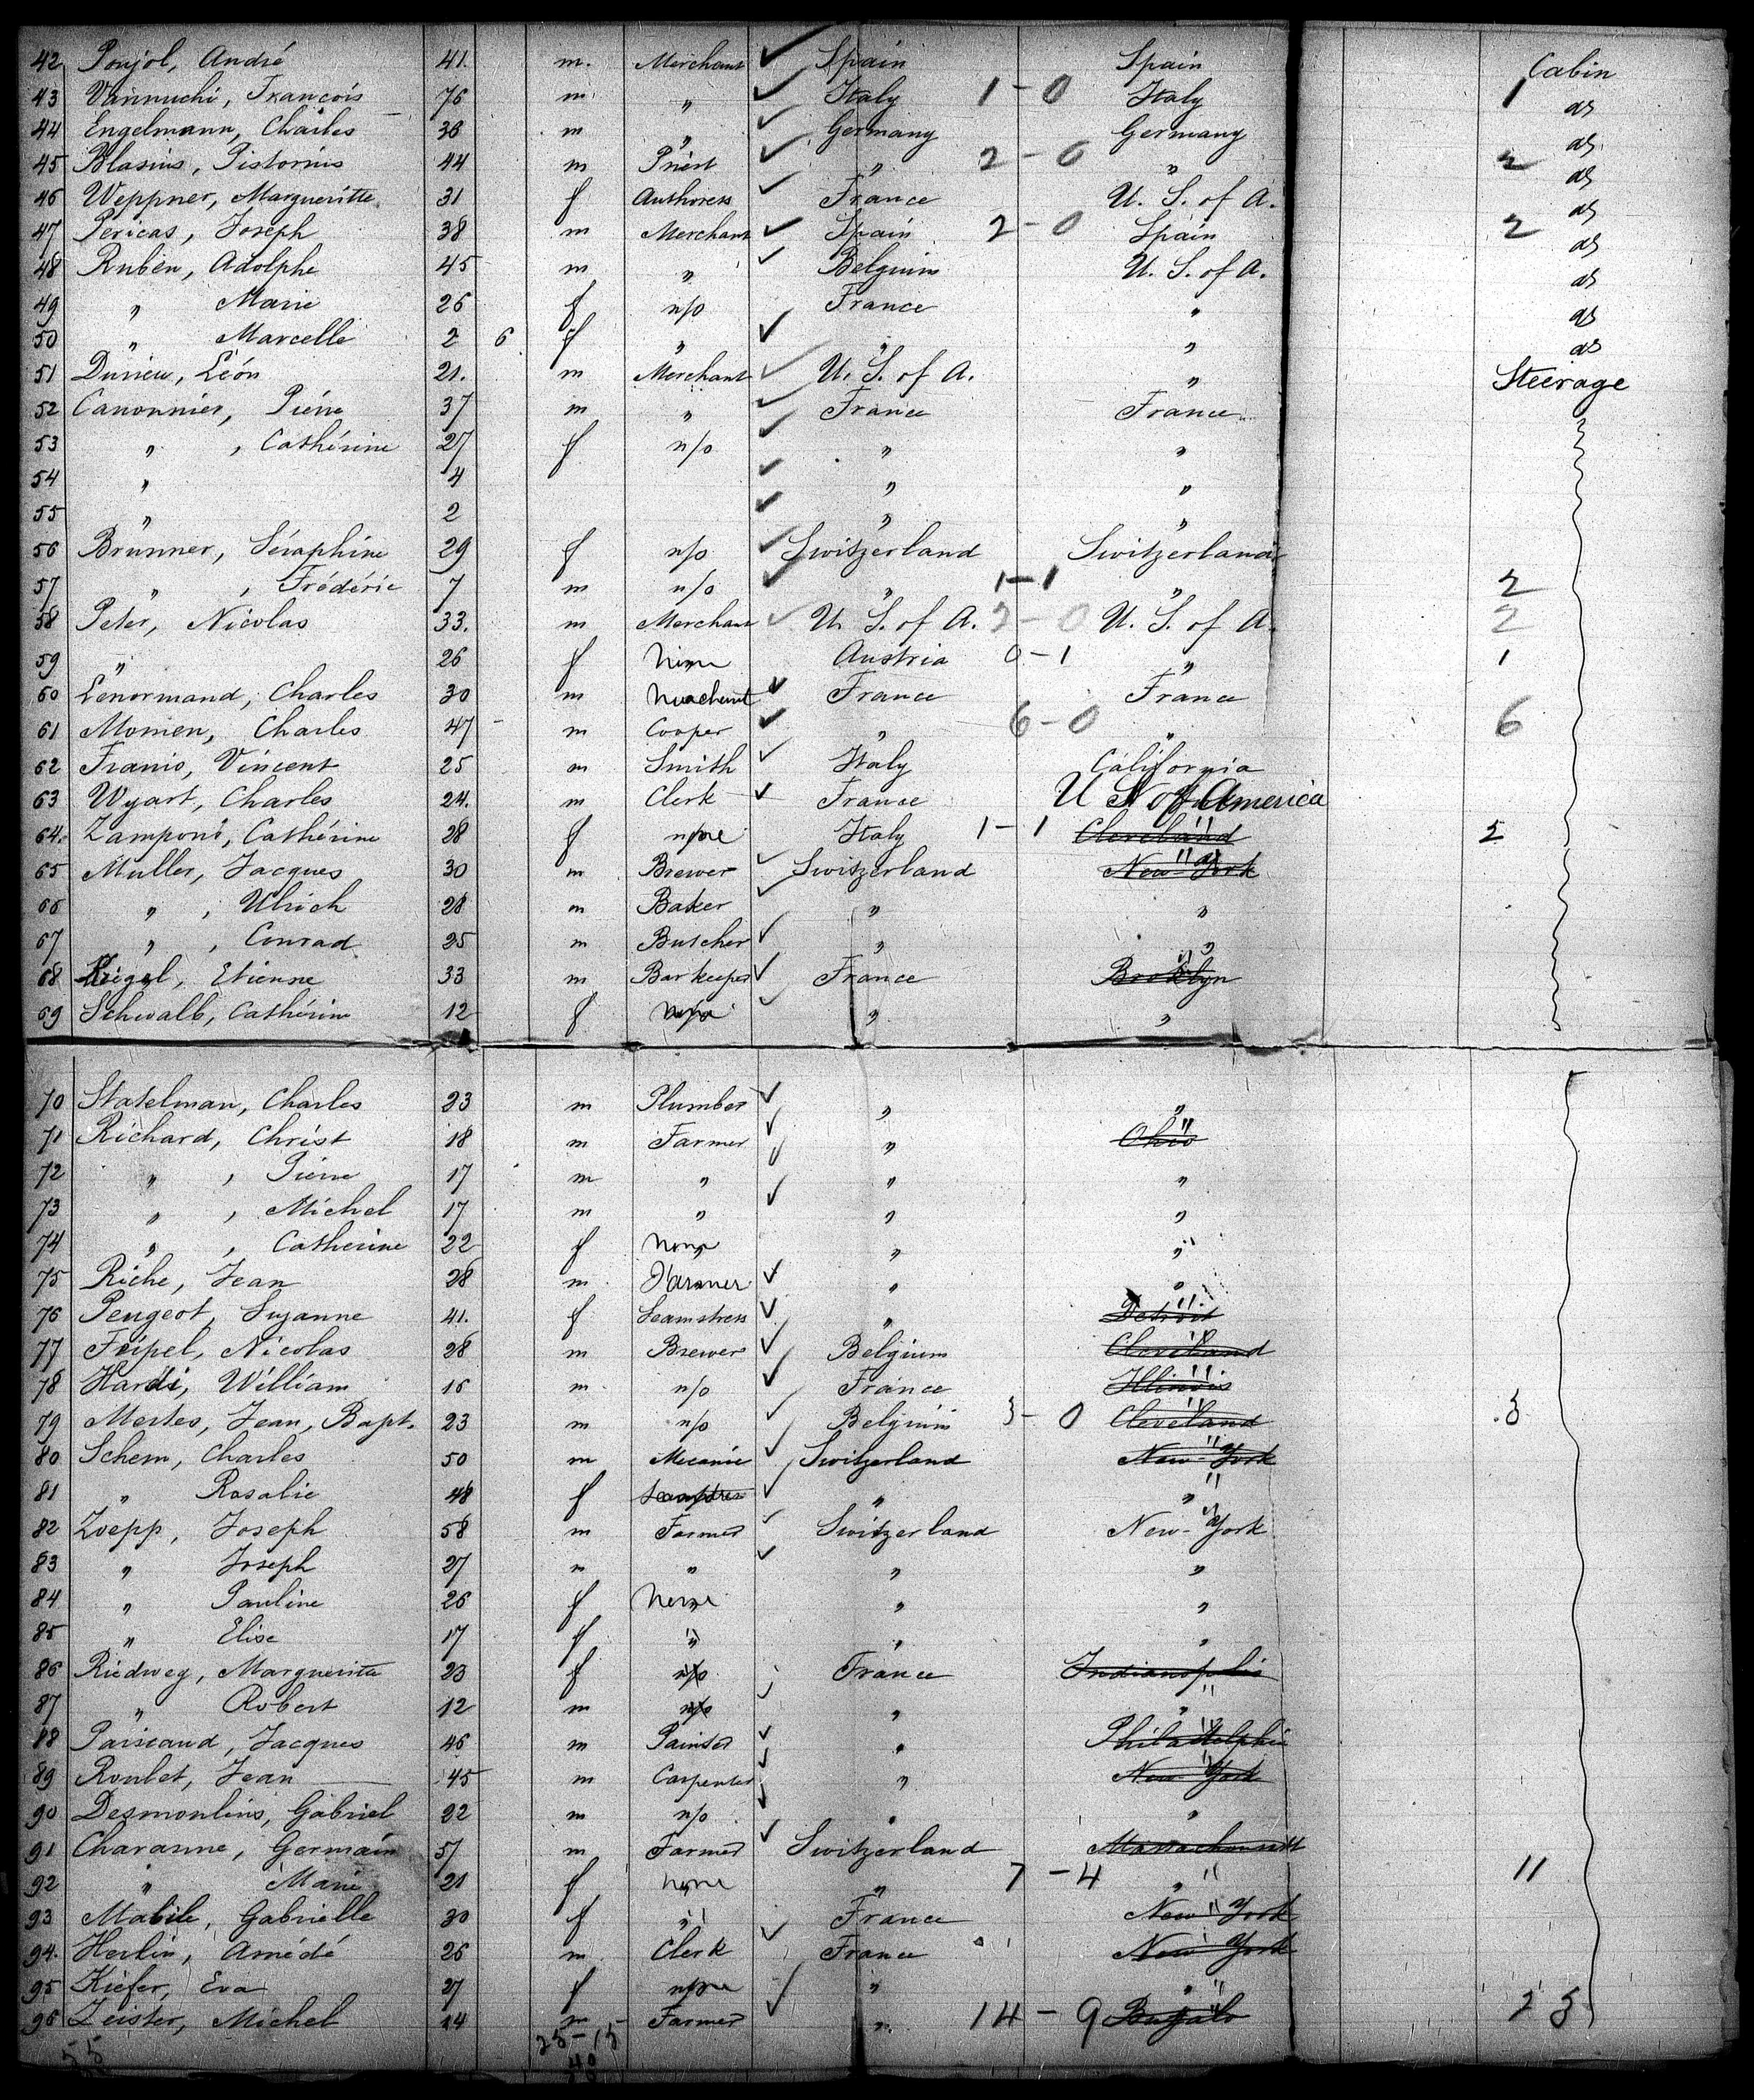 42 Poujol, André 41. m. Merchant Spain Spain Cabin
43 Vannuchi, François 76 m. " Italy 1-0 Italy 1 do
44 Engelmann, Charles 36 m " Germany Germany do
45 Blasius, Pistorius 44 m Priest " 2-0 " 2 do
46 Weppner, Margueritte 31 f Authoress France U. S. of A. do
47 Pericas, Joseph 38 m Merchant Spain 2-0 Spain 2 do
48 Ruben, Adolphe 45 m " Belgium U. S. of A. do
49 " Marie 26 f n/o France " do
50 " Marcelle 2 6 f " " " do
51 Durieu, Léon 21. m Merchant U. S. of A. " Steerage
52 Canonnier, Piérre 37 m " France France
53 " , Cathérine 27 f n/o " "
54 " 4 " "
55 " 2 " "
56 Brunner, Séraphine 29 f n/o Switzerland Switzerland
57 " , Frédéric 7 m n/o " 1-1 " 2
58 Peter, Nicolas 33. m Merchant U. S. of A. 2-0 U. S. of A. 2
59 " 26 f None Austria 0-1 " 1
60 Lenormand, Charles 30 m Merchant France France
61 Monien, Charles 47 - m Cooper " 6-0 " 6
62 Franio, Vincent 25 m Smith Italy California
63 Wyart, Charles 24. m Clerk France U S of America
64. Zamponi, Cathérine 28 f none Italy 1-1 Cleveland " 2
65 Muller, Jacques 30 m Brewer Switzerland New-York "
66 " , Ulrich 28 m Baker " "
67 " , Conrad 25 m Butcher " "
68 Etienne 33 m Barkeeper France Broklyn "
69 Schwalb, Cathérine 12 f " "
70 Statelman, Charles 23 m Plumber " "
71 Richard, Christ 18 m Farmer " Ohio "
72 " , Piérre 17 m " " "
73 " , Michel 17 m " " "
74 " , Catherine 22 f None " "
75 Riche, Jean 28 m Farmer " "
76 Peugeot, Suzanne 41. f Seamstress " Detroit "
77 Feipel, Nicolas 28 m Brewer Belgium Cleveland "
78 Hardi, William 16 m n/o France Illinois "
79 Mertes, Jean, Bapt. 23 m n/o Belgium 3-0 Cleveland " 3
80 Schem, Charles 50 m Mecanic Switzerland New-York "
81 " Rosalie 48 f " " "
82 Zoepp, Joseph 58 m Farmer Switzerland New-York "
83 " Joseph 27 m " " "
84 " Pauline 26 f None " "
85 " Elise 17 f " " "
86 Riedweg, Margueritte 23 f n/o France Indianopolis
87 " Robert 12 m n/o " " "
88 Jacques 46 m Painter " Philadelphia "
89 Roulet, Jean 45 m Carpenter " New-York "
90 Desmoulins, Gabriel 32 m n/o " "
91 Charanne, Germain 57 m Farmer Switzerland
92 " Marie 21 f none " 7-4 " " 11
93 Mabile, Gabrielle 30 f " France New-York "
94. Herlin, Amédé 26 m Clerk France New York "
95 Kiefer, Eva 27 f none " " "
96 Zeister, Michel 14 m Farmer " 14-9 Bufalo " 23
55 25-15
40